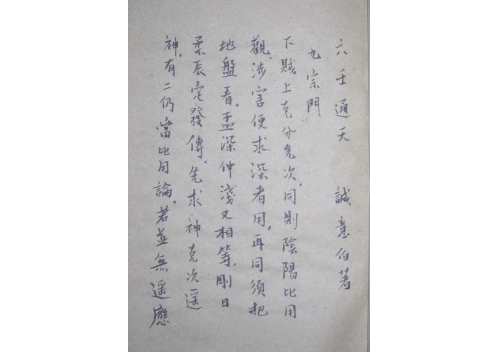 六壬通天　誠意伯著
九宗門
下賊上克分先次，同則陰陽比用
觀，涉害便求深者用，再同須把
地盤看，孟深仲淺又相等，剛日
柔辰定發傳，先求神克次遥
神，有二仍當比用論，若並無遥應